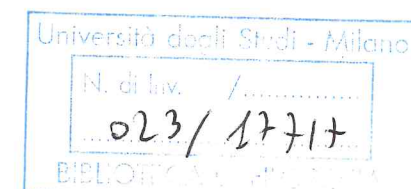 Università degli Studi - Milano
N. di Inv. /..............
023/ 17717
BIBLIOTECA